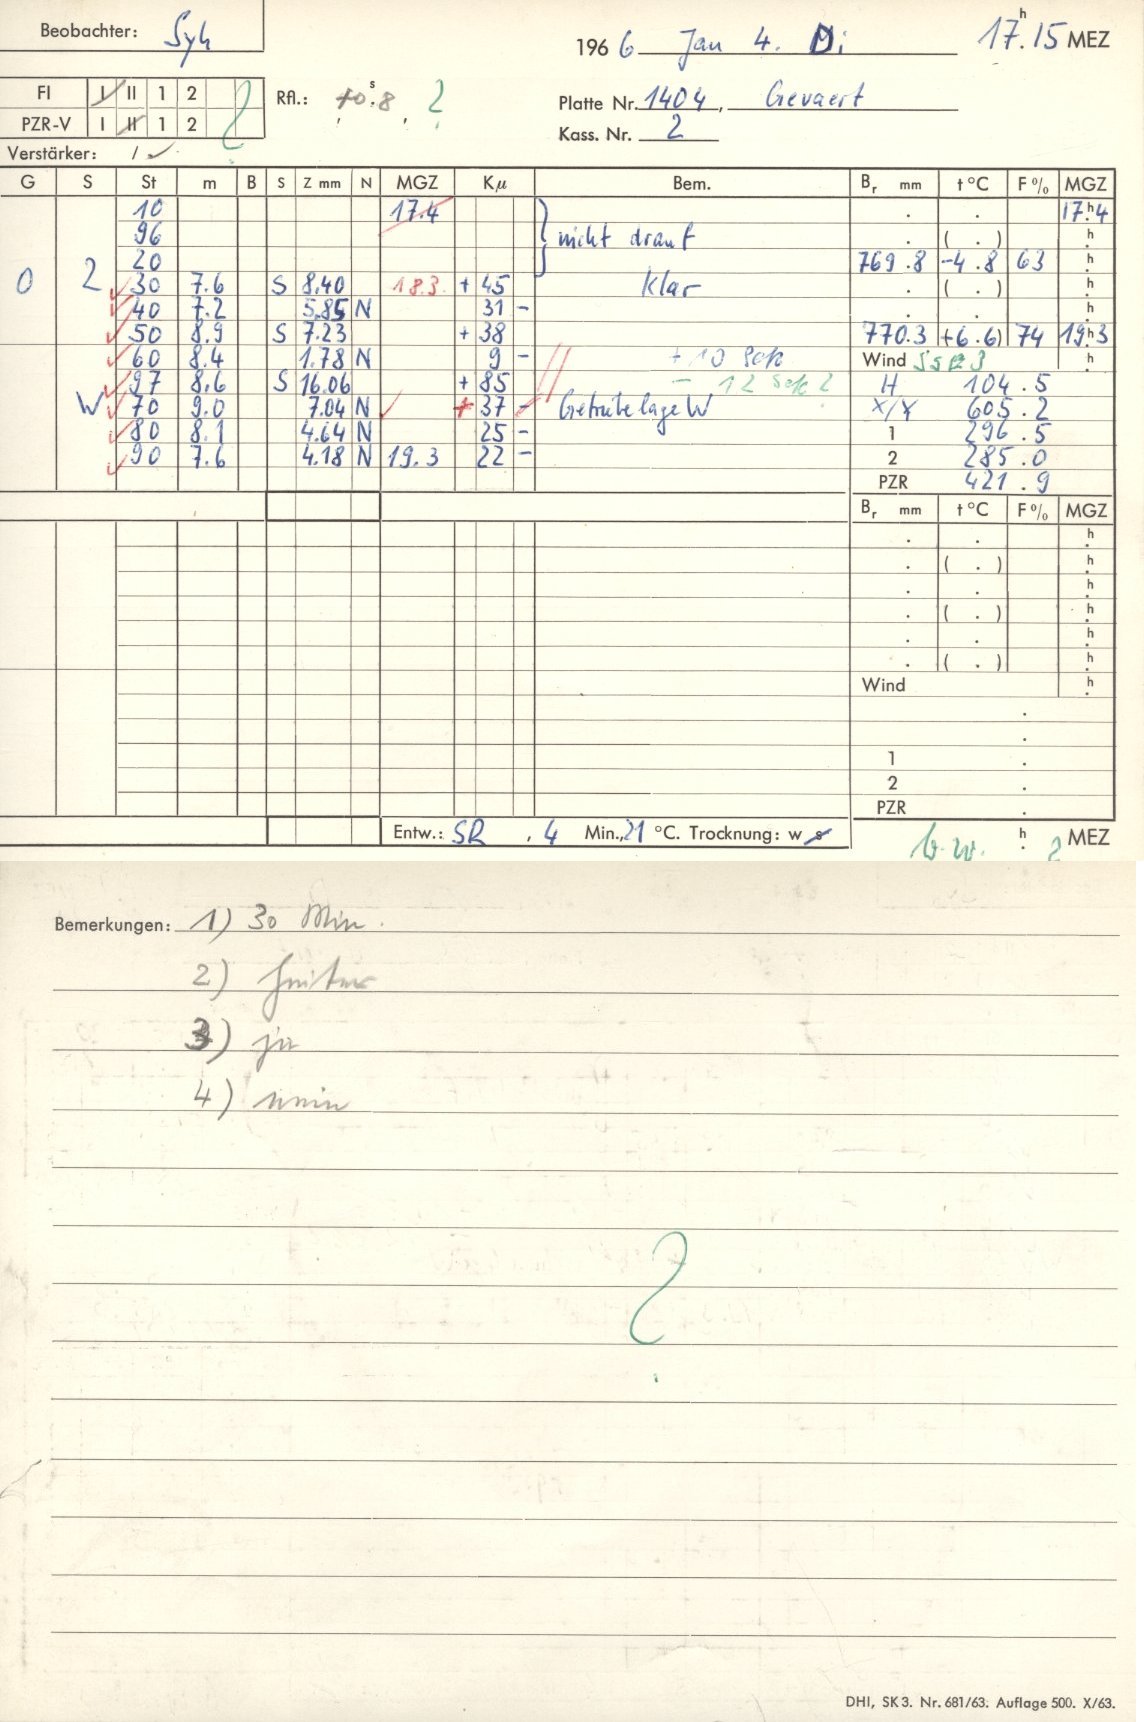 Beobachter: Syh
1966 Jan 4. Di 17h.15 MEZ
FI I II 1 2 ? Rfl.: +0s.8, ? Platte Nr. 1404, Gevaert
PZR-V I II 1 2 Kass. Nr. 2
Verstärker: / ✓
G S St m B S Z mm N MGZ Kμ Bem. Br mm t °C F % MGZ
10 17.4 17h.4
96 nicht drauf ( . ) h
20 769.8 -4.8 63 h
0 2 30 7.6 S 8.40 18.3 + 45 klar ( . ) h
40 7.2 5.85 N 31 - h
50 8.9 S 7.23 + 38 770.3 (+6.6) 74 19h.3
60 8.4 1.78 N 9 - + 10 Sek Wind SSE 3 h
97 8.6 S 16.06 + 85 - 12 sek ? H 104.5
W 70 9.0 7.04 N 37 - Getriebelage W X/Y 605.2
80 8.1 4.64 N 25 - 1 296.5
90 7.6 4.18 N 19.3 22 - 2 285.0
PZR 421.9
Br mm t °C F % MGZ
. . h
. ( . ) h
. . h
. ( . ) h
. . h
. ( . ) h
Wind h
.
.
1 .
2 .
PZR .
Entw.: SR, 4 Min., 21 °C. Trocknung: w s b.w. ? h MEZ
Bemerkungen: 1) 30 Min.
2) heiter
3) ja
4) nein
?
DHI, SK 3. Nr. 681/63. Auflage 500. X/63.